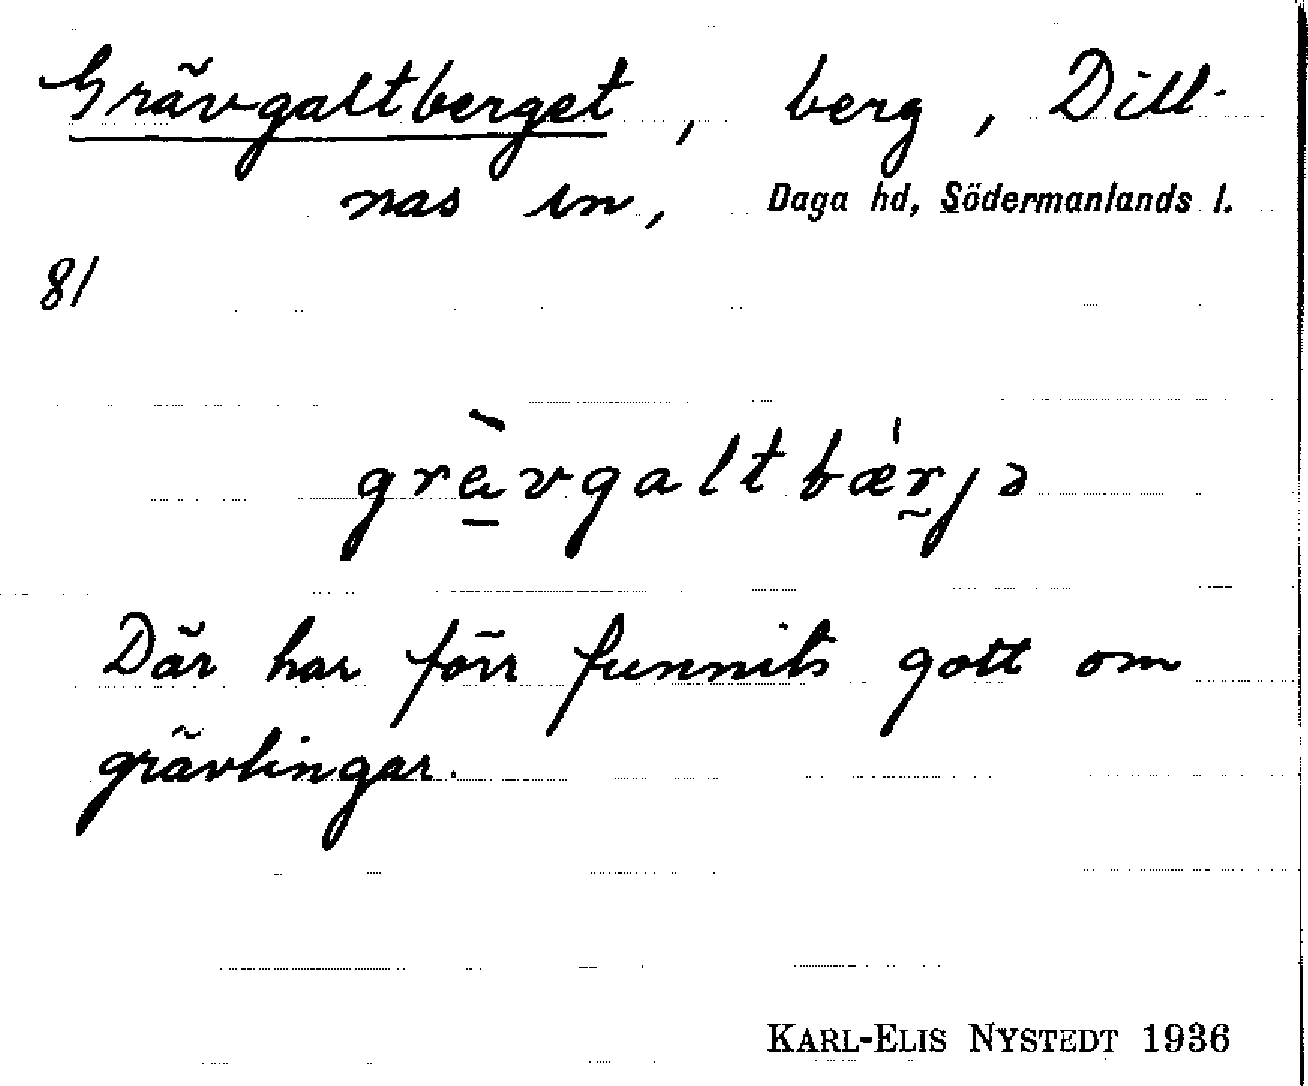 Grävgaltberget, berg, Dill-
nas sn, Daga hd, Södermanlands l.
81
gràvgaltbǽrjə
Där har förr funnits gott om
grävlingar.
KARL-ELIS NYSTEDT 1936